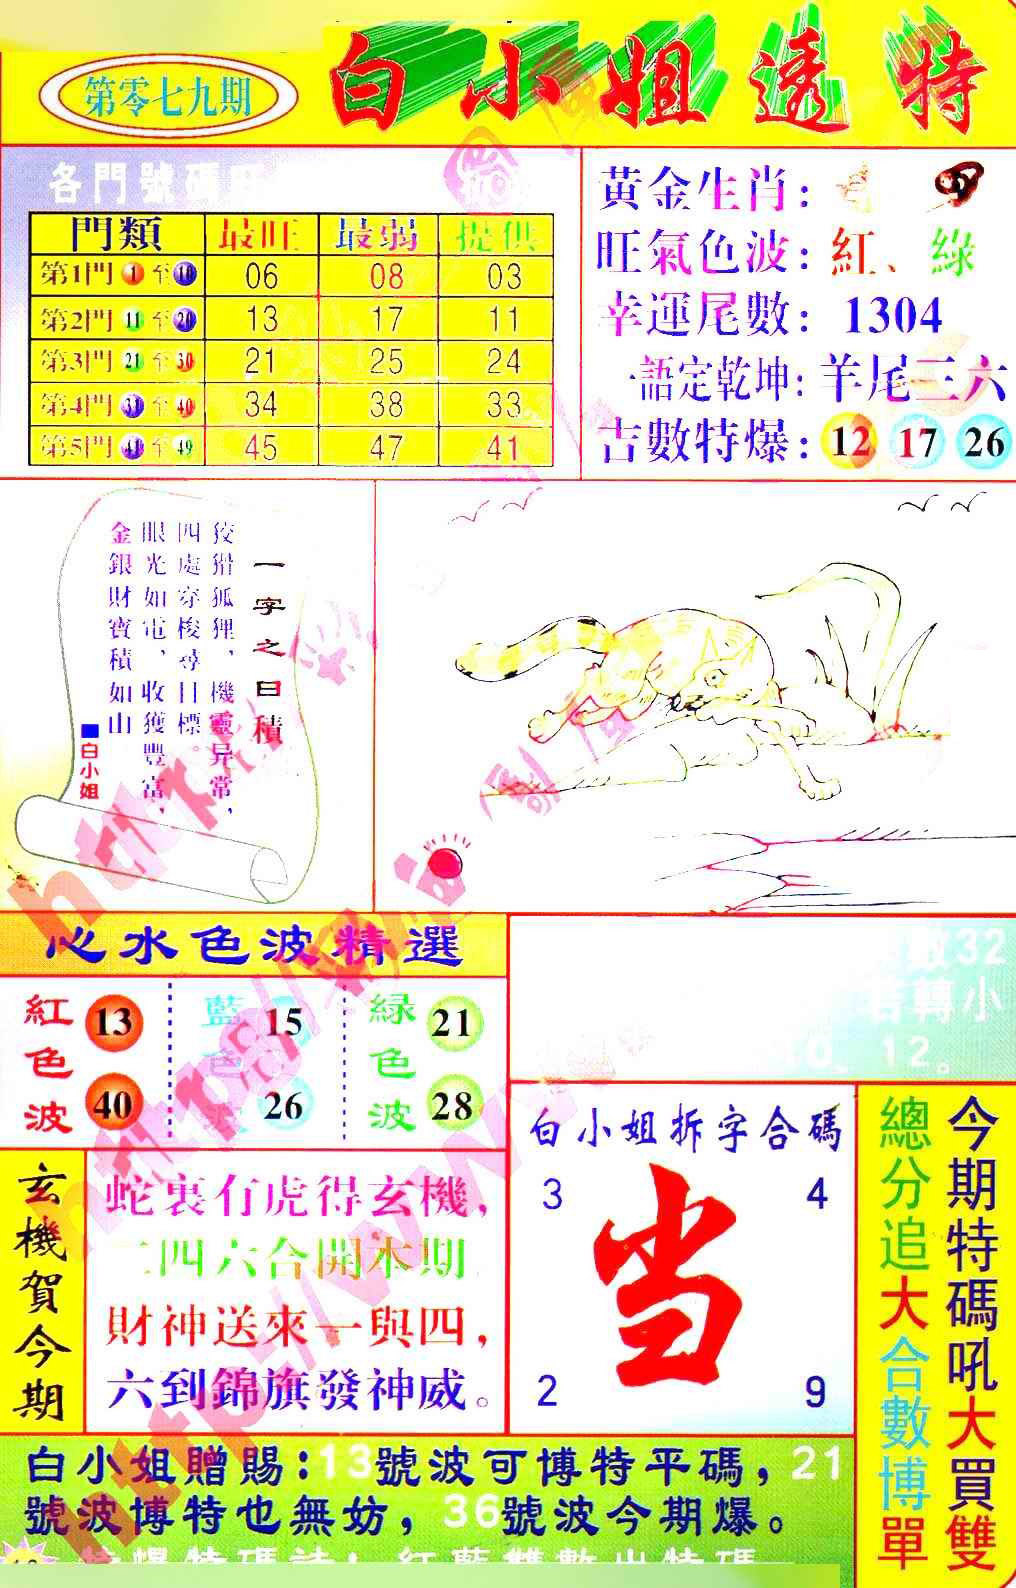 白小姐透特
第零七九期
各門號碼
門類 最旺 最弱 提供
第1門 1 至 10 06 08 03
第2門 11 至 20 13 17 11
第3門 21 至 30 21 25 24
第4門 31 至 40 34 38 33
第5門 41 至 49 45 47 41
黃金生肖：
旺氣色波：紅、綠
幸運尾數：1304
一語定乾坤：羊尾三六
古數特爆：12 17 26
一字之曰積
狡猾狐狸、機靈异常，
四處穿梭尋目標。
眼光如電、收獲豐富，
金銀財寶積如山
■白小姐
心水色波精選
紅色波 13 40
藍色波 15 26
綠色波 21 28
數32
若轉小
10、12。
玄機賀今期
蛇裏有虎得玄機，
二四六合開本期
財神送來一與四，
六到錦旗發神威。
白小姐拆字合碼
3 4
当
2 9
今期特碼吼大買雙
總分追大合數博單
白小姐贈賜：13號波可博特平碼，21
號波博特也無妨，36號波今期爆。
特碼詩：紅藍雙數出特碼
http://www